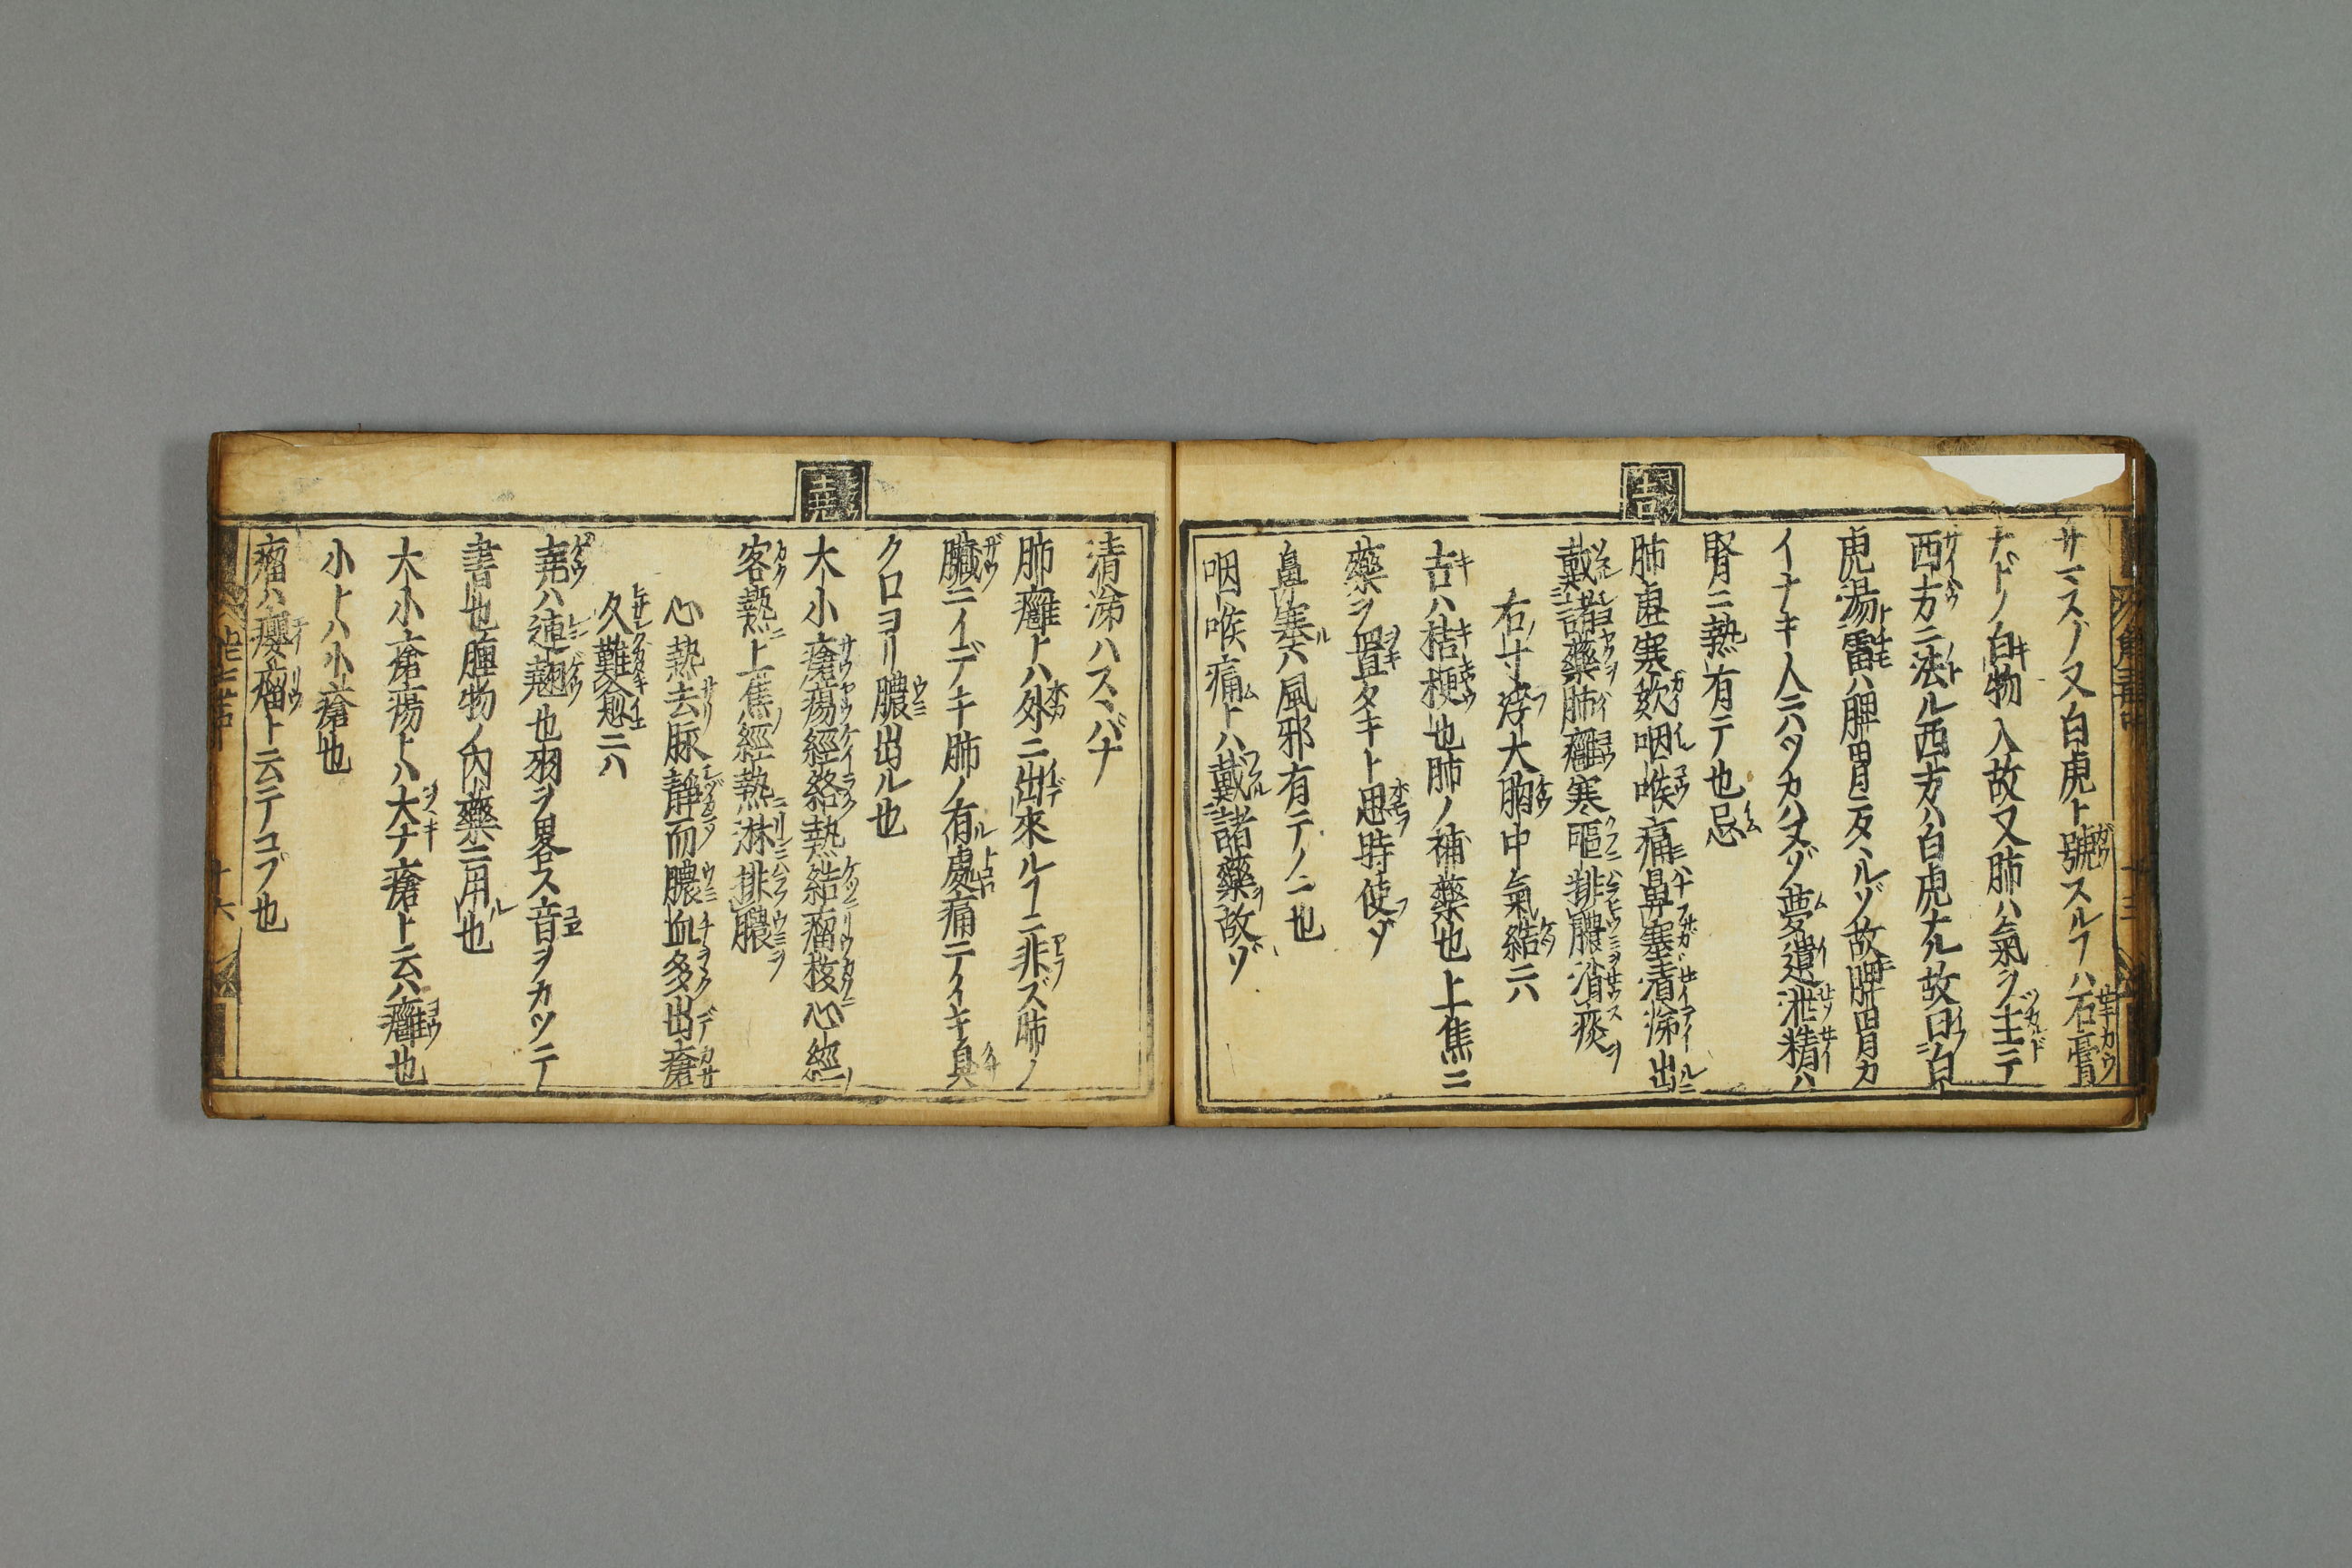 サマスゾ又白虎ト號スルフハ石膏
ナドノ白物入故又肺ハ氣ヲ主テ
西方ニ法ル西方ハ白虎ナル故曰白
虎湯雷ハ脾胃ニ反ヽルゾ故脾胃カ
イナキ人ニハツカハヌゾ夢遺泄精ハ
腎ニ熱有テ也忌
肺虚寒欬咽喉痛鼻塞清涕出
戴諸藥肺癰寒嘔排膿消痰
右寸浮大胸中氣結ニハ
吉ハ桔梗也肺ノ補藥也上焦ニ
藥ヲ置タキト思時使ゾ
鼻塞ハ風邪有テノ亠也
咽喉痛トハ戴諸藥故ゾ
吉
清涕ハスヽバナ
肺癰トハ外ニ出來ルーニ非ズ肺ノ
臓ニイデキ肺ノ有處痛ニテイキ臭
クロヨリ膿出ル也
大小瘡瘍經絡熱結瘤核心經
客熱上焦經熱淋排膿
心熱去脉靜而膿血多出瘡
久難愈ニハ
堯ハ連翹也羽ヲ畧ス音ヲカツテ
書也腫物ノ内藥ニ用也
大小瘡瘍トハ大ナ瘡ト云ハ癰也
小トハ小瘡也
瘤ハ癭瘤ト云テコブ也
十六